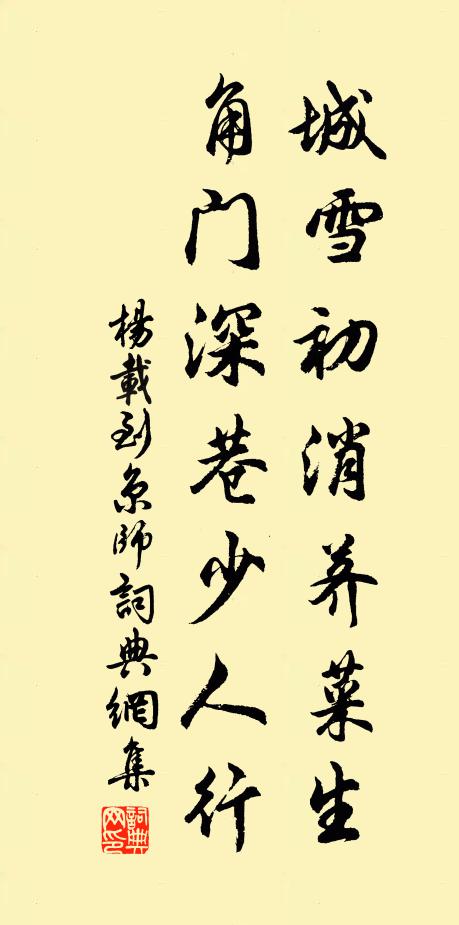 城雪初消荠菜生
角门深巷少人行
楊載到京師詞典網集
詞典网印